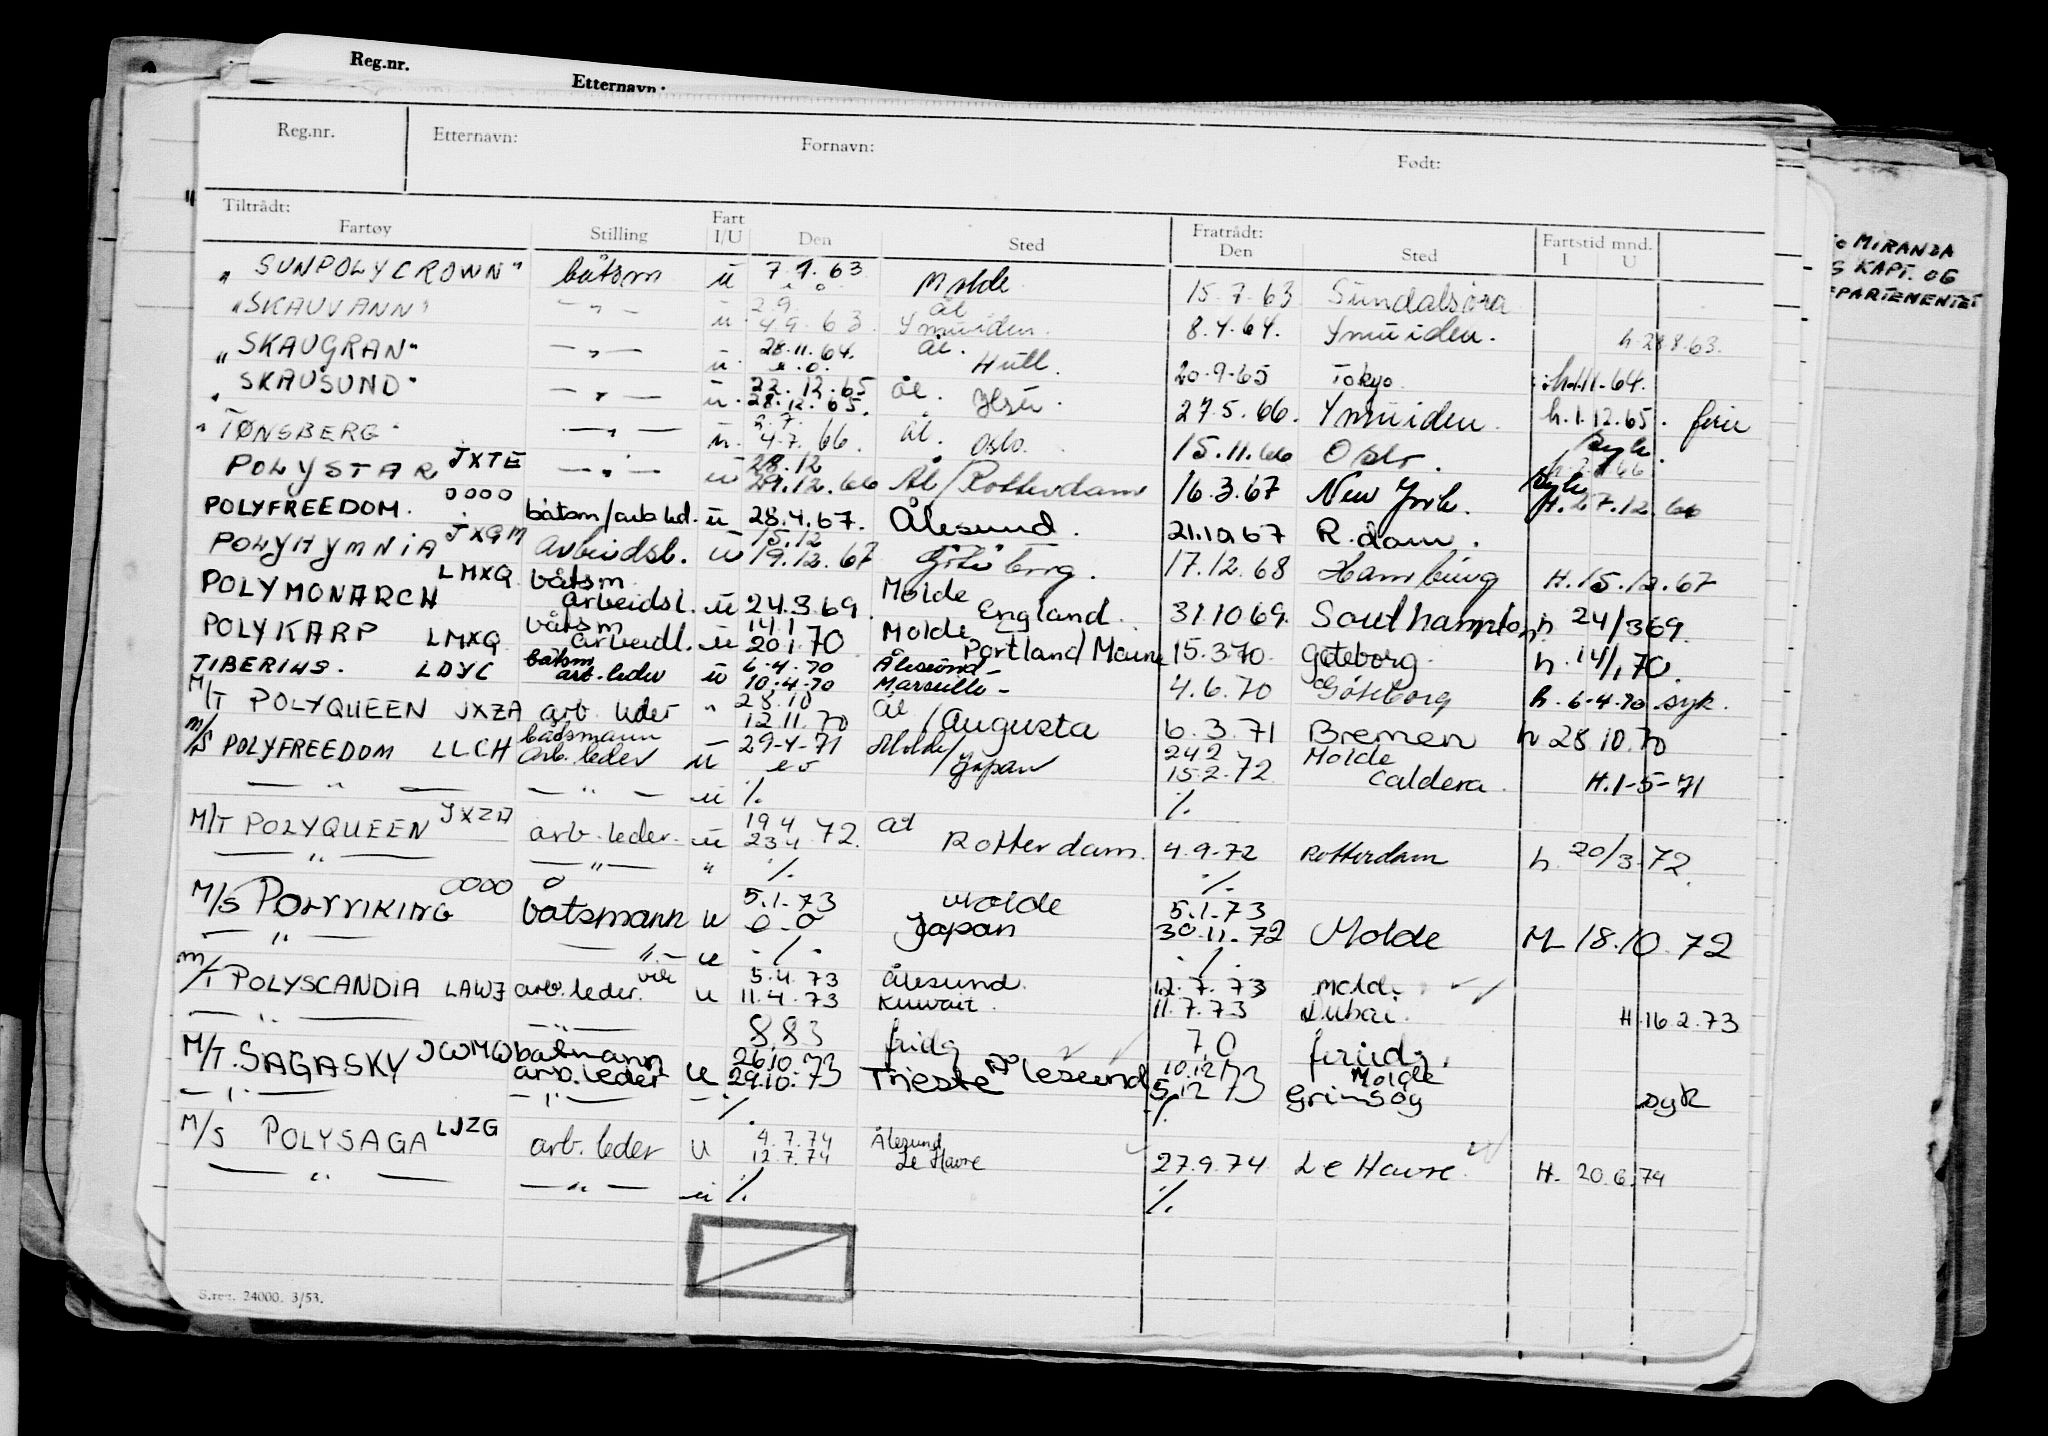 Reg.nr.
Etternavn:
Reg.nr. Etternavn: Fornavn: Født:
Tiltrådt: Fratrådt:
Fartøy Stilling Fart I/U Den Sted Den Sted Fartstid mnd. I U
TO MIRANDA
S KAPT. OG
EPARTEMENTET
"SUNPOLYCROWN" båtsm u 7.1.63 Molde 15.7.63 Sundalsøra
"SKAUVANN" — " — u 2.9. 4.9.63. Ål Ymuiden. 8.4.64. Ymuiden. h. 28.8.63.
"SKAUGRAN" — " — u. 28.11.64. Ål. Hull. 20.9.65 Tokyo.
"SKAUSUND" — " — u. 22.12.65 28.12.65. Ål. 27.5.66. Ymuiden. h.1.12.65. ferie
"TØNSBERG" — " — u. 4.7.66. Ål. Oslo. 15.11.66 Oslo.
POLYSTAR JXTE — " — u 28.12 29.12.66 Ål/Rotterdam 16.3.67 New York. H.27.12.66
POLYFREEDOM. oooo båtsm/arb led. u 28.4.67. Ålesund. 21.10.67 R.dam.
POLYHYMNIA JXGM arbeidsl. u 15.12 19.12.67 Göteborg. 17.12.68 Hamburg H.15.12.67
POLYMONARCH LMXQ båtsm arbeidsl. u 24.3.69. Molde England. 31.10 69. Southampton h 24/3 69.
POLYKARP LMXQ båtsm arbeidl. u 14.1 20.1.70 Molde Portland Maine 15.3.70. Göteborg. h. 14/1 70.
TIBERIUS. LDYC båtsm arb. leder u 6-4-70 10-4-70 Ålesund- Marseille- 4.6.70 Göteborg h. 6-4-70. syk.
M/T POLYQUEEN JXZA arb. leder " 28.10 12.11.70 Ål /Augusta 6.3.71 Bremen h 28 10.70
m/s POLYFREEDOM LLCH båtsmann arb. leder u 29-4-71 Molde/ Japan 24 2 15.2.72 Molde Caldera. H.1-5-71
— " — — " — u ./. ./.
M/T POLYQUEEN JXZA arb. leder. u 19 4 23 4 72. Ål Rotterdam. 4.9.72 Rotterdam h. 20/3.72.
— " — — " — " ./. ./.
M/S POLYVIKING oooo båtsmann u 5.1.73 o-o Molde Japan 5.1.73 30.11.72 Molde M 18.10.72
— " — — " — u ./. ./.
m/T POLYSCANDIA LAWJ arb. leder. vik u 5.4.73 11.4.73 Ålesund. Kuwait. 12.7.73 11.7.73 Molde Dubai. H.16.2.73
— " — — " — 8.83 fridg 7.0 feriedg.
M/T. SAGASKY JWMW båtmann arb. leder u 26.10.73 29.10.73 Ålesund Trieste 10.12 5.12 73 Molde Grimsøy syk
— " — — " — — ./. ./.
M/S POLYSAGA LJZG arb. leder u 4.7.74 12.7.74 Ålesund Le Havre 27.9.74 Le Havre. H. 20.6.74
— " — — " — u ./. ./.
S.reg. 24000. 3/53.